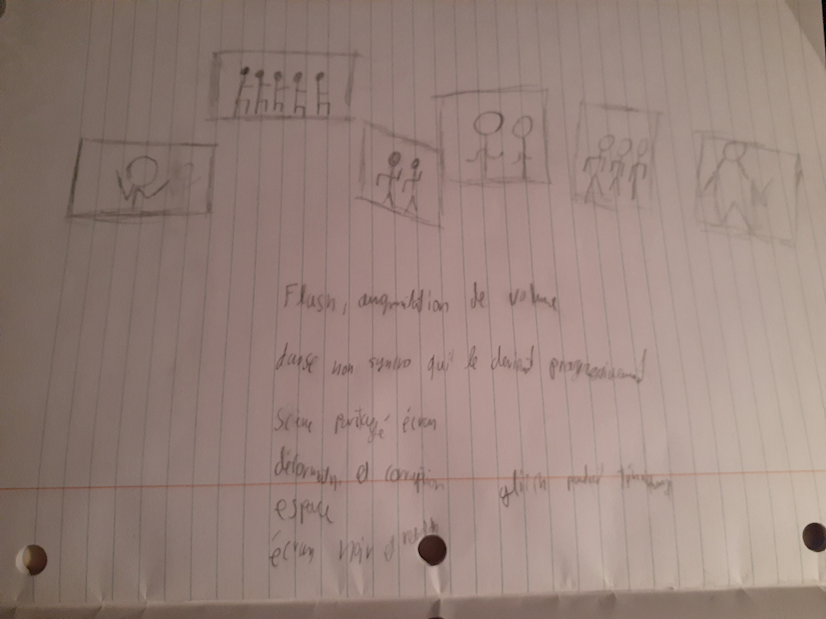 Flash, augmentation de volume
danse non synchro qui le devient progressivement
Scène partagé écran
déformation et corruption
glitch pendant
espace
écran noir